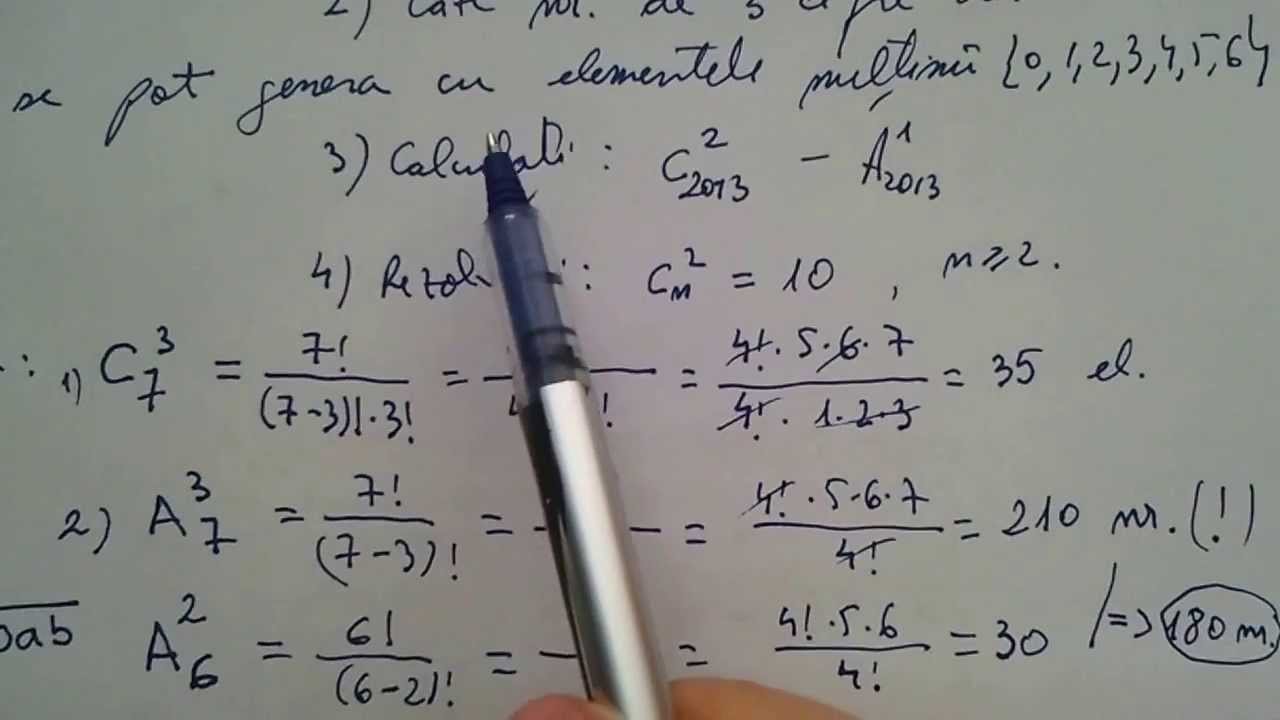 2) Câte nr. de 3 cifre
se pot genera cu elementele mulțimii {0,1,2,3,4,5,6}
3) Calculați : C²₂₀₁₃ − A¹₂₀₁₃
4) : Cₙ² = 10 , n ≥ 2.
1) C₇³ = 7!/((7-3)!·3!) = = (4!·5·6·7)/(4!·1·2·3) = 35 el.
2) A₇³ = 7!/(7-3)! = = (4!·5·6·7)/4! = 210 nr. (!)
0ab A₆² = 6!/(6-2)! = = (4!·5·6)/4! = 30 /=> 180 nr.